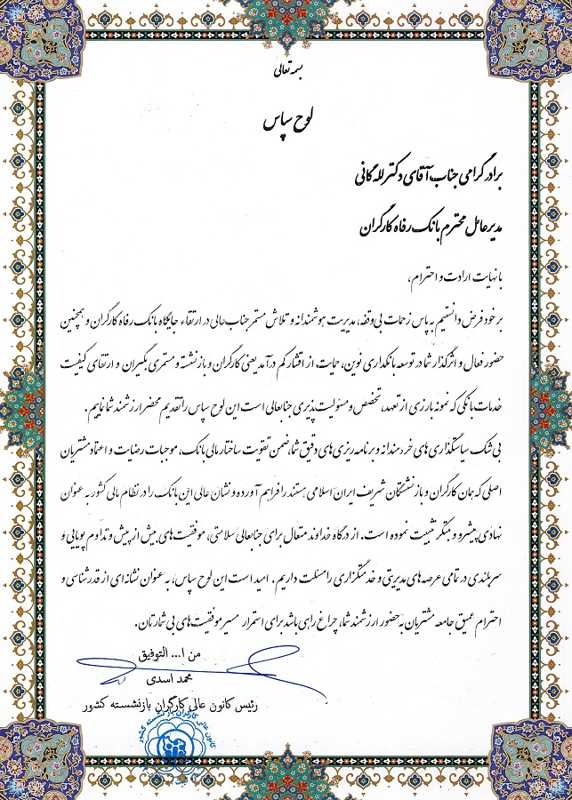 بسمه تعالی
لوح سپاس
برادر گرامی جناب آقای دکتر لله گانی
مدیرعامل محترم بانک رفاه کارگران
با نهایت ارادت و احترام،
بر خود فرض دانستیم به پاس زحمات بی‌وقفه، مدیریت هوشمندانه و تلاش مستمر جناب‌عالی در ارتقاء جایگاه بانک رفاه کارگران و همچنین
حضور فعال و اثرگذار شما در توسعه بانکداری نوین، حمایت از اقشار کم درآمد یعنی کارگران و بازنشسته و مستمری بگیران و ارتقای کیفیت
خدمات بانکی که نمونه بارزی از تعهد، تخصص و مسئولیت‌پذیری جنابعالی است این لوح سپاس را تقدیم محضر ارزشمند شما نماییم.
بی‌شک سیاستگذاری های خردمندانه و برنامه‌ریزی های دقیق شما، ضمن تقویت ساختار مالی بانک، موجبات رضایت و اعتماد مشتریان
اصلی که همان کارگران و بازنشستگان شریف ایران اسلامی هستند را فراهم آورده و نشان عالی این بانک را در نظام مالی کشور به عنوان
نهادی پیشرو و مبتکر تثبیت نموده است. از درگاه خداوند متعال برای جنابعالی سلامتی، موفقیت‌های بیش از پیش و تداوم پویایی و
سربلندی در تمامی عرصه های مدیریتی و خدمتگزاری را مسئلت داریم. امید است این لوح سپاس، به عنوان نشانه ای از قدرشناسی و
احترام عمیق جامعه مشتریان به حضور ارزشمند شما، چراغ راهی باشد برای استمرار مسیر موفقیت های بی شمارتان.
من ا... التوفیق
محمد اسدی
رئیس کانون عالی کارگران بازنشسته کشور
کانون عالی کارگران بازنشسته کشور